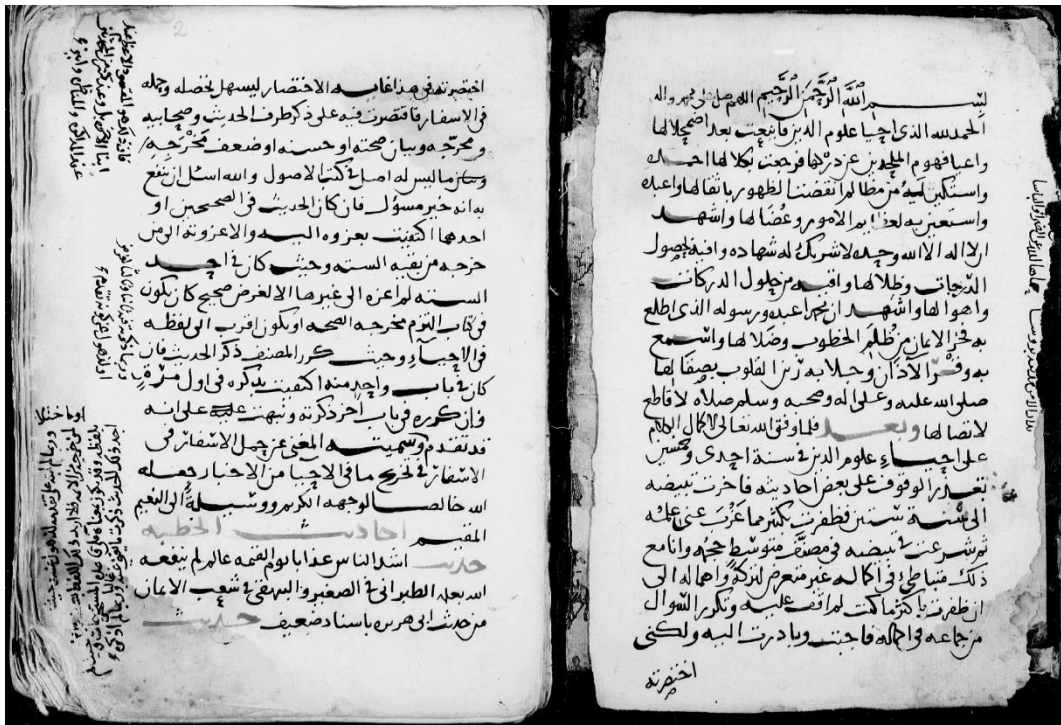 بسم الله الرحمن الرحيم اللهم صل على محمد واله
الحمد لله الذي احيا علوم الدين فاينعت بعد اضمحلالها
واعيا فهوم الملحدين عن دركها فرجعت بكلالها احمده
واستكين ليه من مظالم انقضت الظهور باثقالها واعبده
واستعين به لعظايم الامور وعضالها واشهد
ان لا اله الا الله وحده لا شريك له شهاده وافيه لحصول
الدرجات وظلالها واقيه من حلول الدركات
واهوالها واشهد ان محمدا عبده ورسوله الذي اطلع
به فجر الايمان من ظلم الخطوب وضلالها واسمع
به وقر الآذان وجلا به رين القلوب بصقالها
صلى الله عليه وعلى اله وصحبه وسلم صلاة لا قاطع
لاتصالها وبعد فلما وفق الله تعالى لاكمال الكلام
على احياء علوم الدين في سنة احدى وخمسين
تعذر الوقوف على بعض احاديثه فاخرت تبييضه
الى سنة ستين فظفرت بكثير مما عزب عني علمه
ثم شرعت في تبييضه في مصنف متوسط حجمه وانا مع
ذلك متباطئ في اكماله غير متعرض لتركه واهماله الى
ان ظفرت باكثر ما كنت لم اقف عليه وتكرر السوال
من جماعه في اكماله فاجبت وبادرت اليه ولكني
اختصرته
2
اختصرته في هذا غايه الاختصار ليسهل تحصله وحمله
في الاسفار فاقتصرت فيه على ذكر طرف الحديث وصحابيه
ومخرجه وبيان صحته او حسنه او ضعف مخرجه
وبيان ما ليس له اصل في كتب الاصول والله اسئل ان ينفع
به انه خير مسؤل فان كان الحديث في الصحيحين او
احدهما اكتفيت بعزوه اليه والا عزوته الى من
خرجه من بقيه السته وحيث كان في احد
السته لم اعزه الى غيرها الا لغرض صحيح كان يكون
في كتاب التزم مخرجه الصحه او يكون اقرب الى لفظه
في الاحياء وحيث كرر المصنف ذكر الحديث فان
كان في باب واحد منه اكتفيت بذكره في اول مرة
وان كرره في باب آخر ذكرته ونبهت على انه
قد تقدم وسميته المغني عن حمل الاسفار في
الاسفار في تخريج ما في الاحيا من الاخبار جعله
الله خالصا لوجهه الكريم ووسيلة الى النعيم
المقيم احاديث الخطبه
حديث اشد الناس عذابا يوم القيمه عالم لم ينفعه
الله بعلمه الطبراني في الصغير والبيهقي في شعب الايمان
من حديث ابي هريره باسناد ضعيف حديث